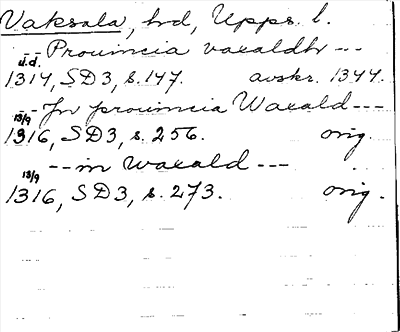 Vaksala, hd, Upps. l.
-- Prouincia vaxaldhr ---
u.d.
1314, SD3, s. 147. avskr. 1344.
-- Jn prouincia Waxald ---
13/9
1316, SD3, s. 256. orig.
-- in waxald ---
13/9
1316, SD3, s. 273. orig.